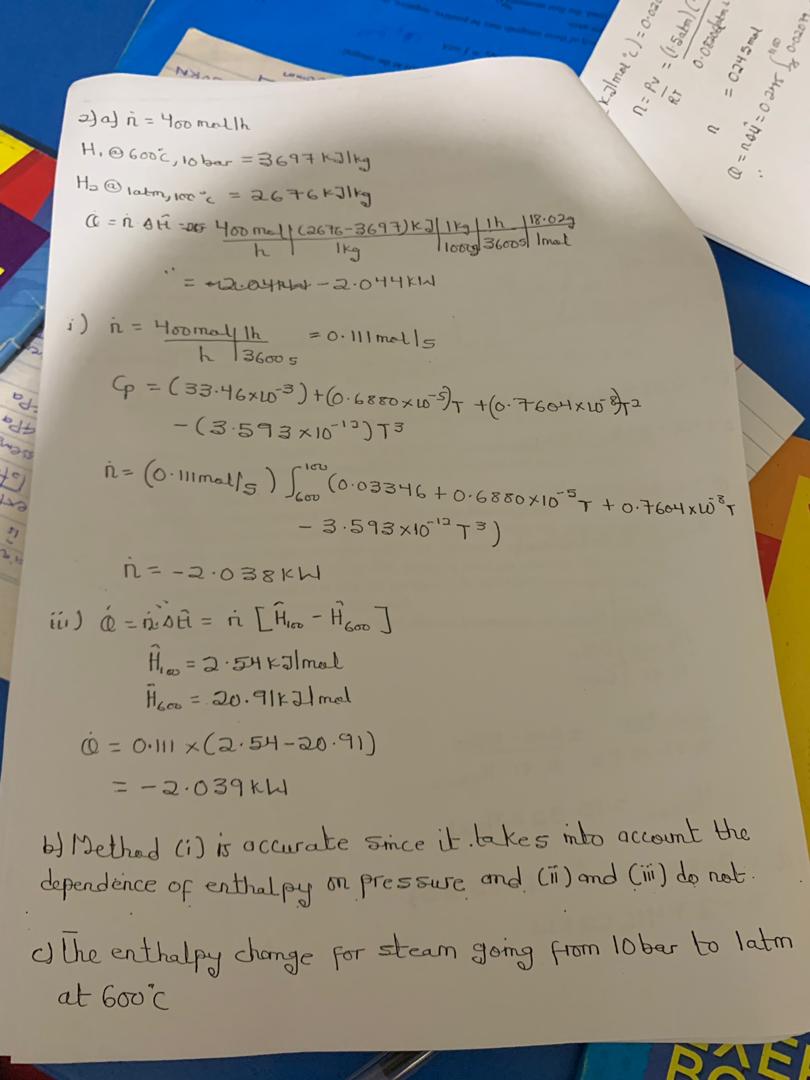 2) a) ṅ = 400 mol/h
H₁ @ 600°C, 10 bar = 3697 kJ/kg
H₂ @ 1atm, 100°C = 2676 kJ/kg
Q̇ = ṅ ΔĤ = 400 mol | (2676-3697) kJ | 1kg | 1h | 18.02g
h | 1kg | 1000g | 3600s | 1mol
= -2.044 kW
i) ṅ = 400 mol | 1h = 0.111 mol/s
h | 3600s
Cp = (33.46×10⁻³) + (0.6880×10⁻⁵)T + (0.7604×10⁻⁸)T²
- (3.593×10⁻¹²)T³
ṅ = (0.111 mol/s) ∫₆₀₀¹⁰⁰ (0.03346 + 0.6880×10⁻⁵T + 0.7604×10⁻⁸T
- 3.593×10⁻¹²T³)
ṅ = -2.038 kW
iii) Q̇ = ṅ ΔĤ = ṅ [Ĥ₁₀₀ - Ĥ₆₀₀]
Ĥ₁₀₀ = 2.54 kJ/mol
Ĥ₆₀₀ = 20.91 kJ/mol
Q̇ = 0.111 × (2.54-20.91)
= -2.039 kW
b) Method (i) is accurate since it takes into account the
dependence of enthalpy on pressure and (ii) and (iii) do not.
c) The enthalpy change for steam going from 10bar to 1atm
at 600°C
kJ/mol°C) = 0.02
n = PV = (1.5atm)(
RT
n = 0.245 mol